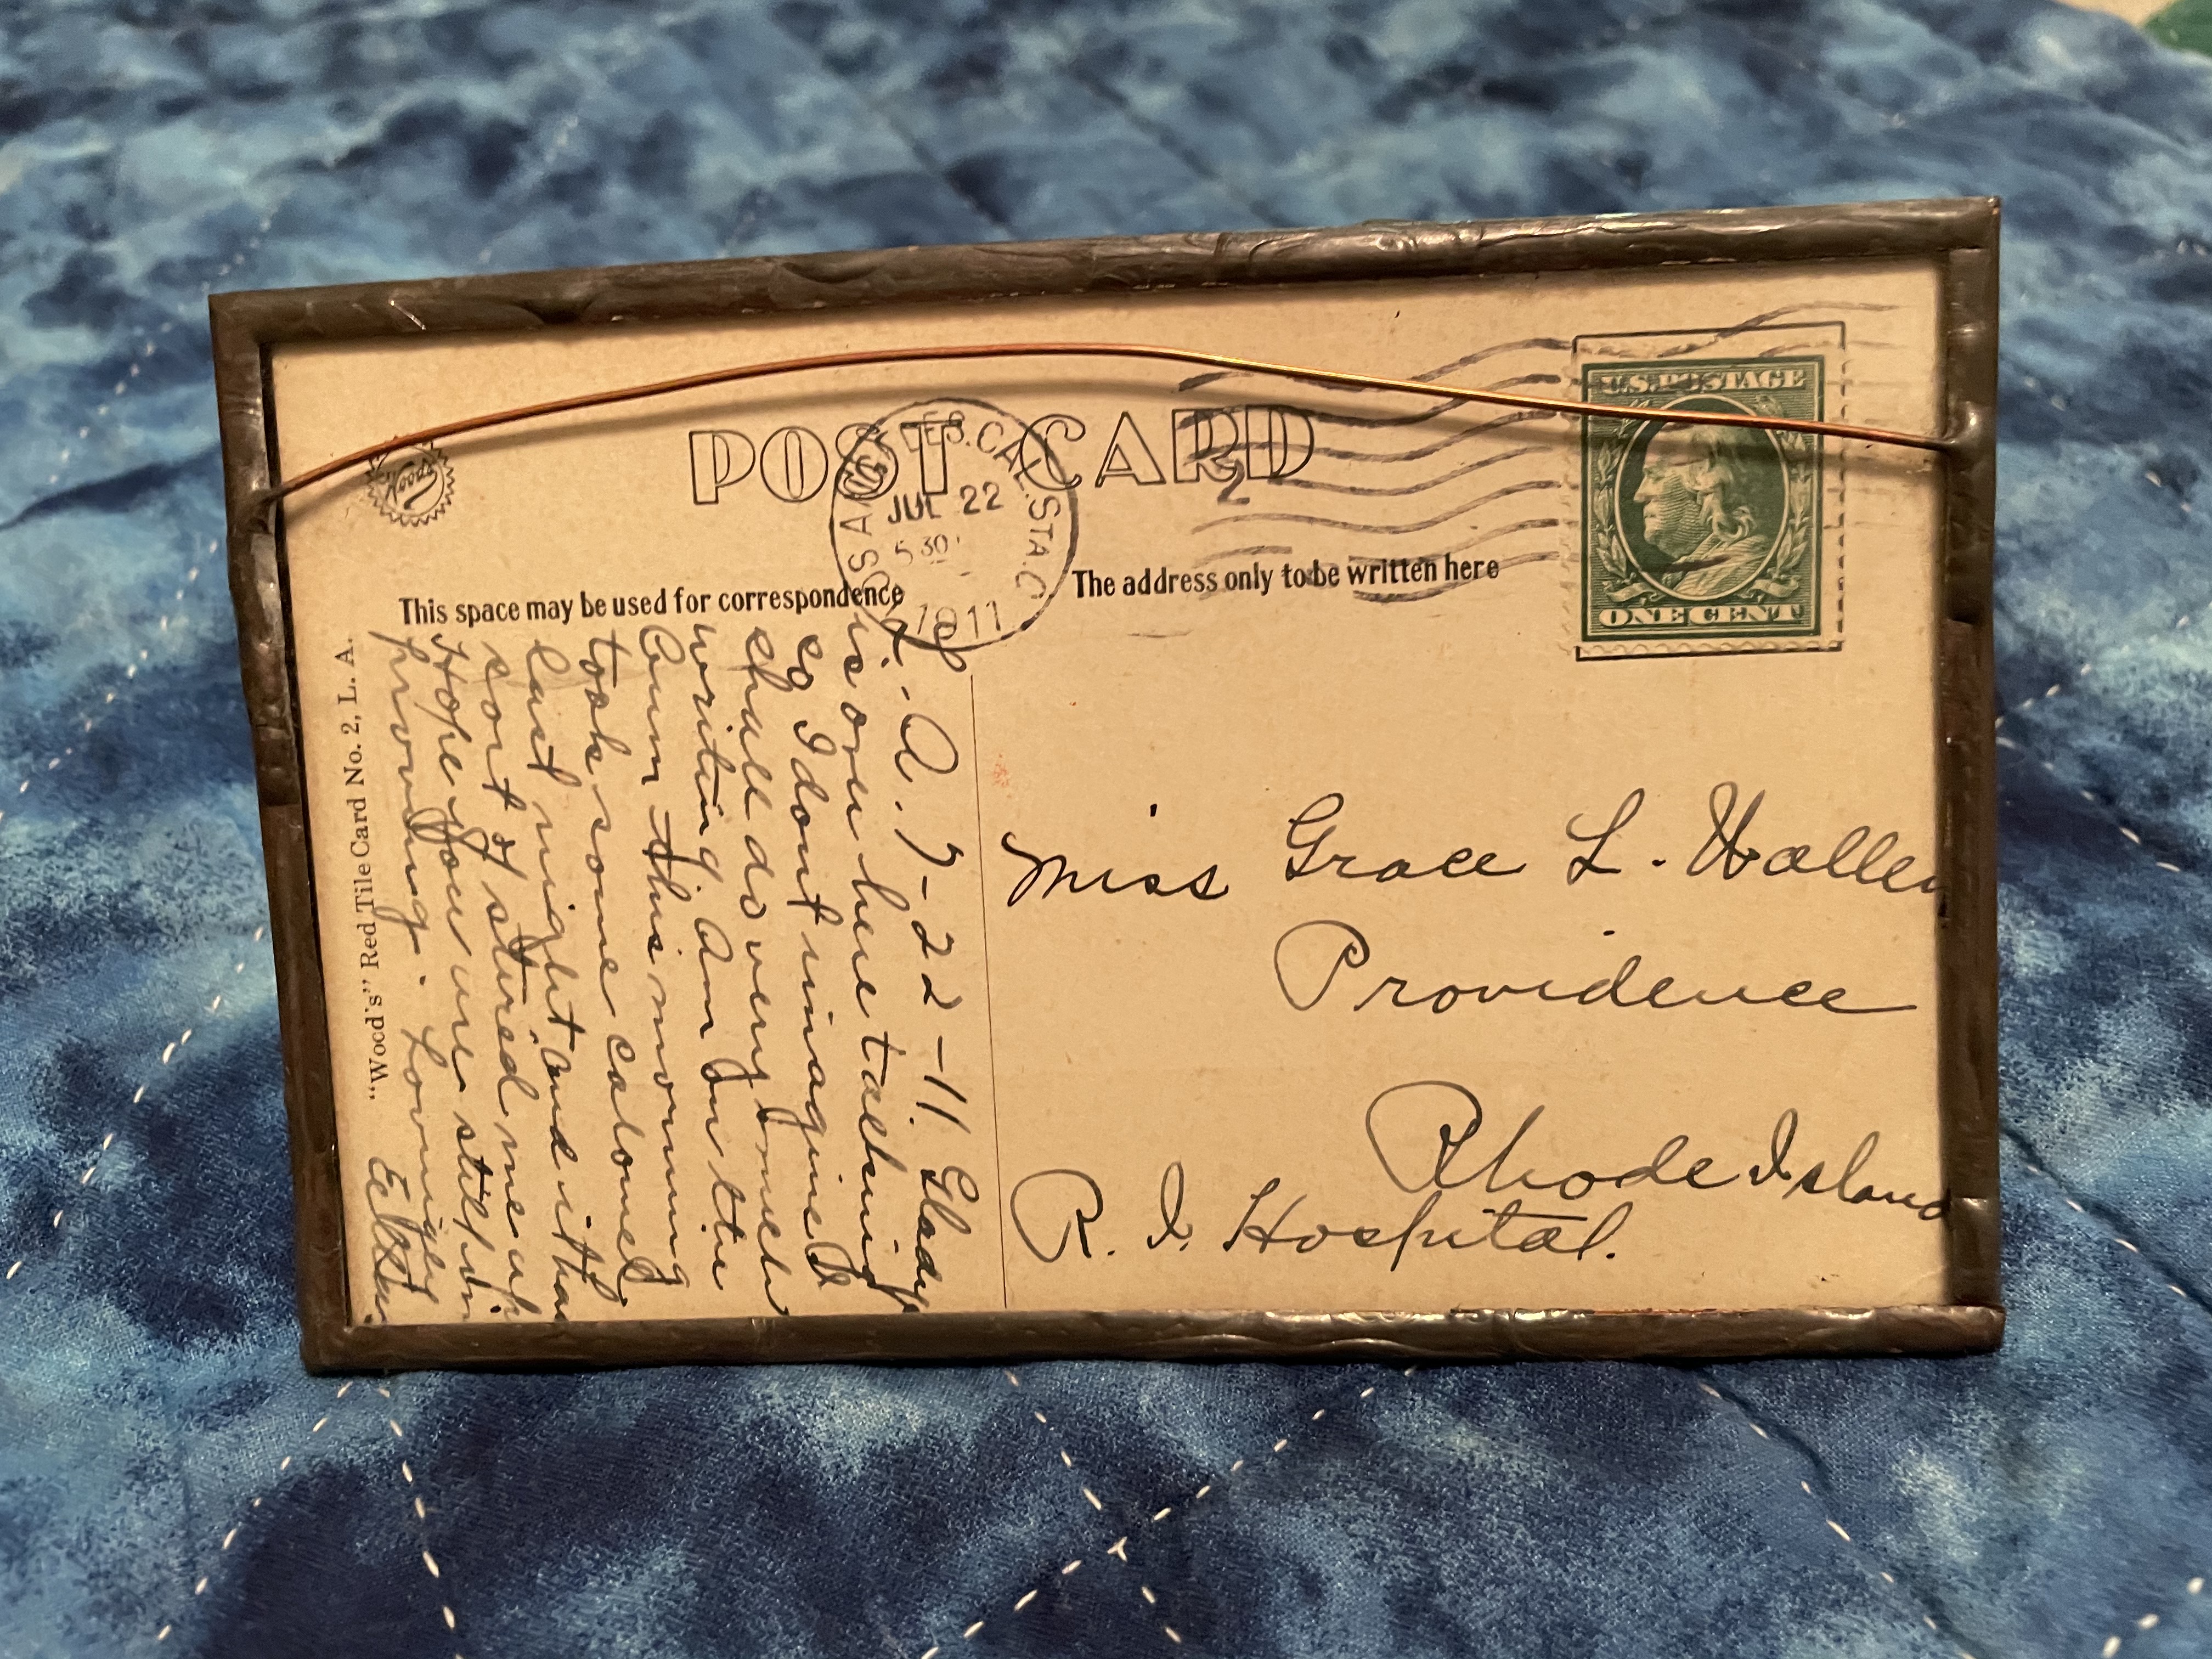 POST CARD
LOS ANGELES. CAL. STA. C
JUL 22
5 30
1911
2
U.S. POSTAGE
ONE CENT
This space may be used for correspondence
The address only to be written here
"Wood's" Red Tile Card No. 2, L. A.
L. A. 7-22-11. Gladys
is over here talking
so I dont imagine I
shall do very much
writing. Am on the
Coum this morning
took some calomel
last night and it has
sort of stired me up
Hope you are still im
proving. Lovingly
Miss Grace L.
Providence
Rhode Island
R. I. Hospital.